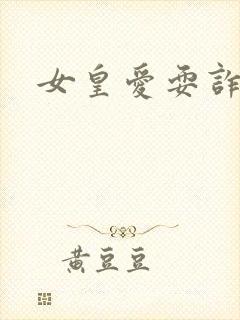 女皇愛耍詐
黃豆豆